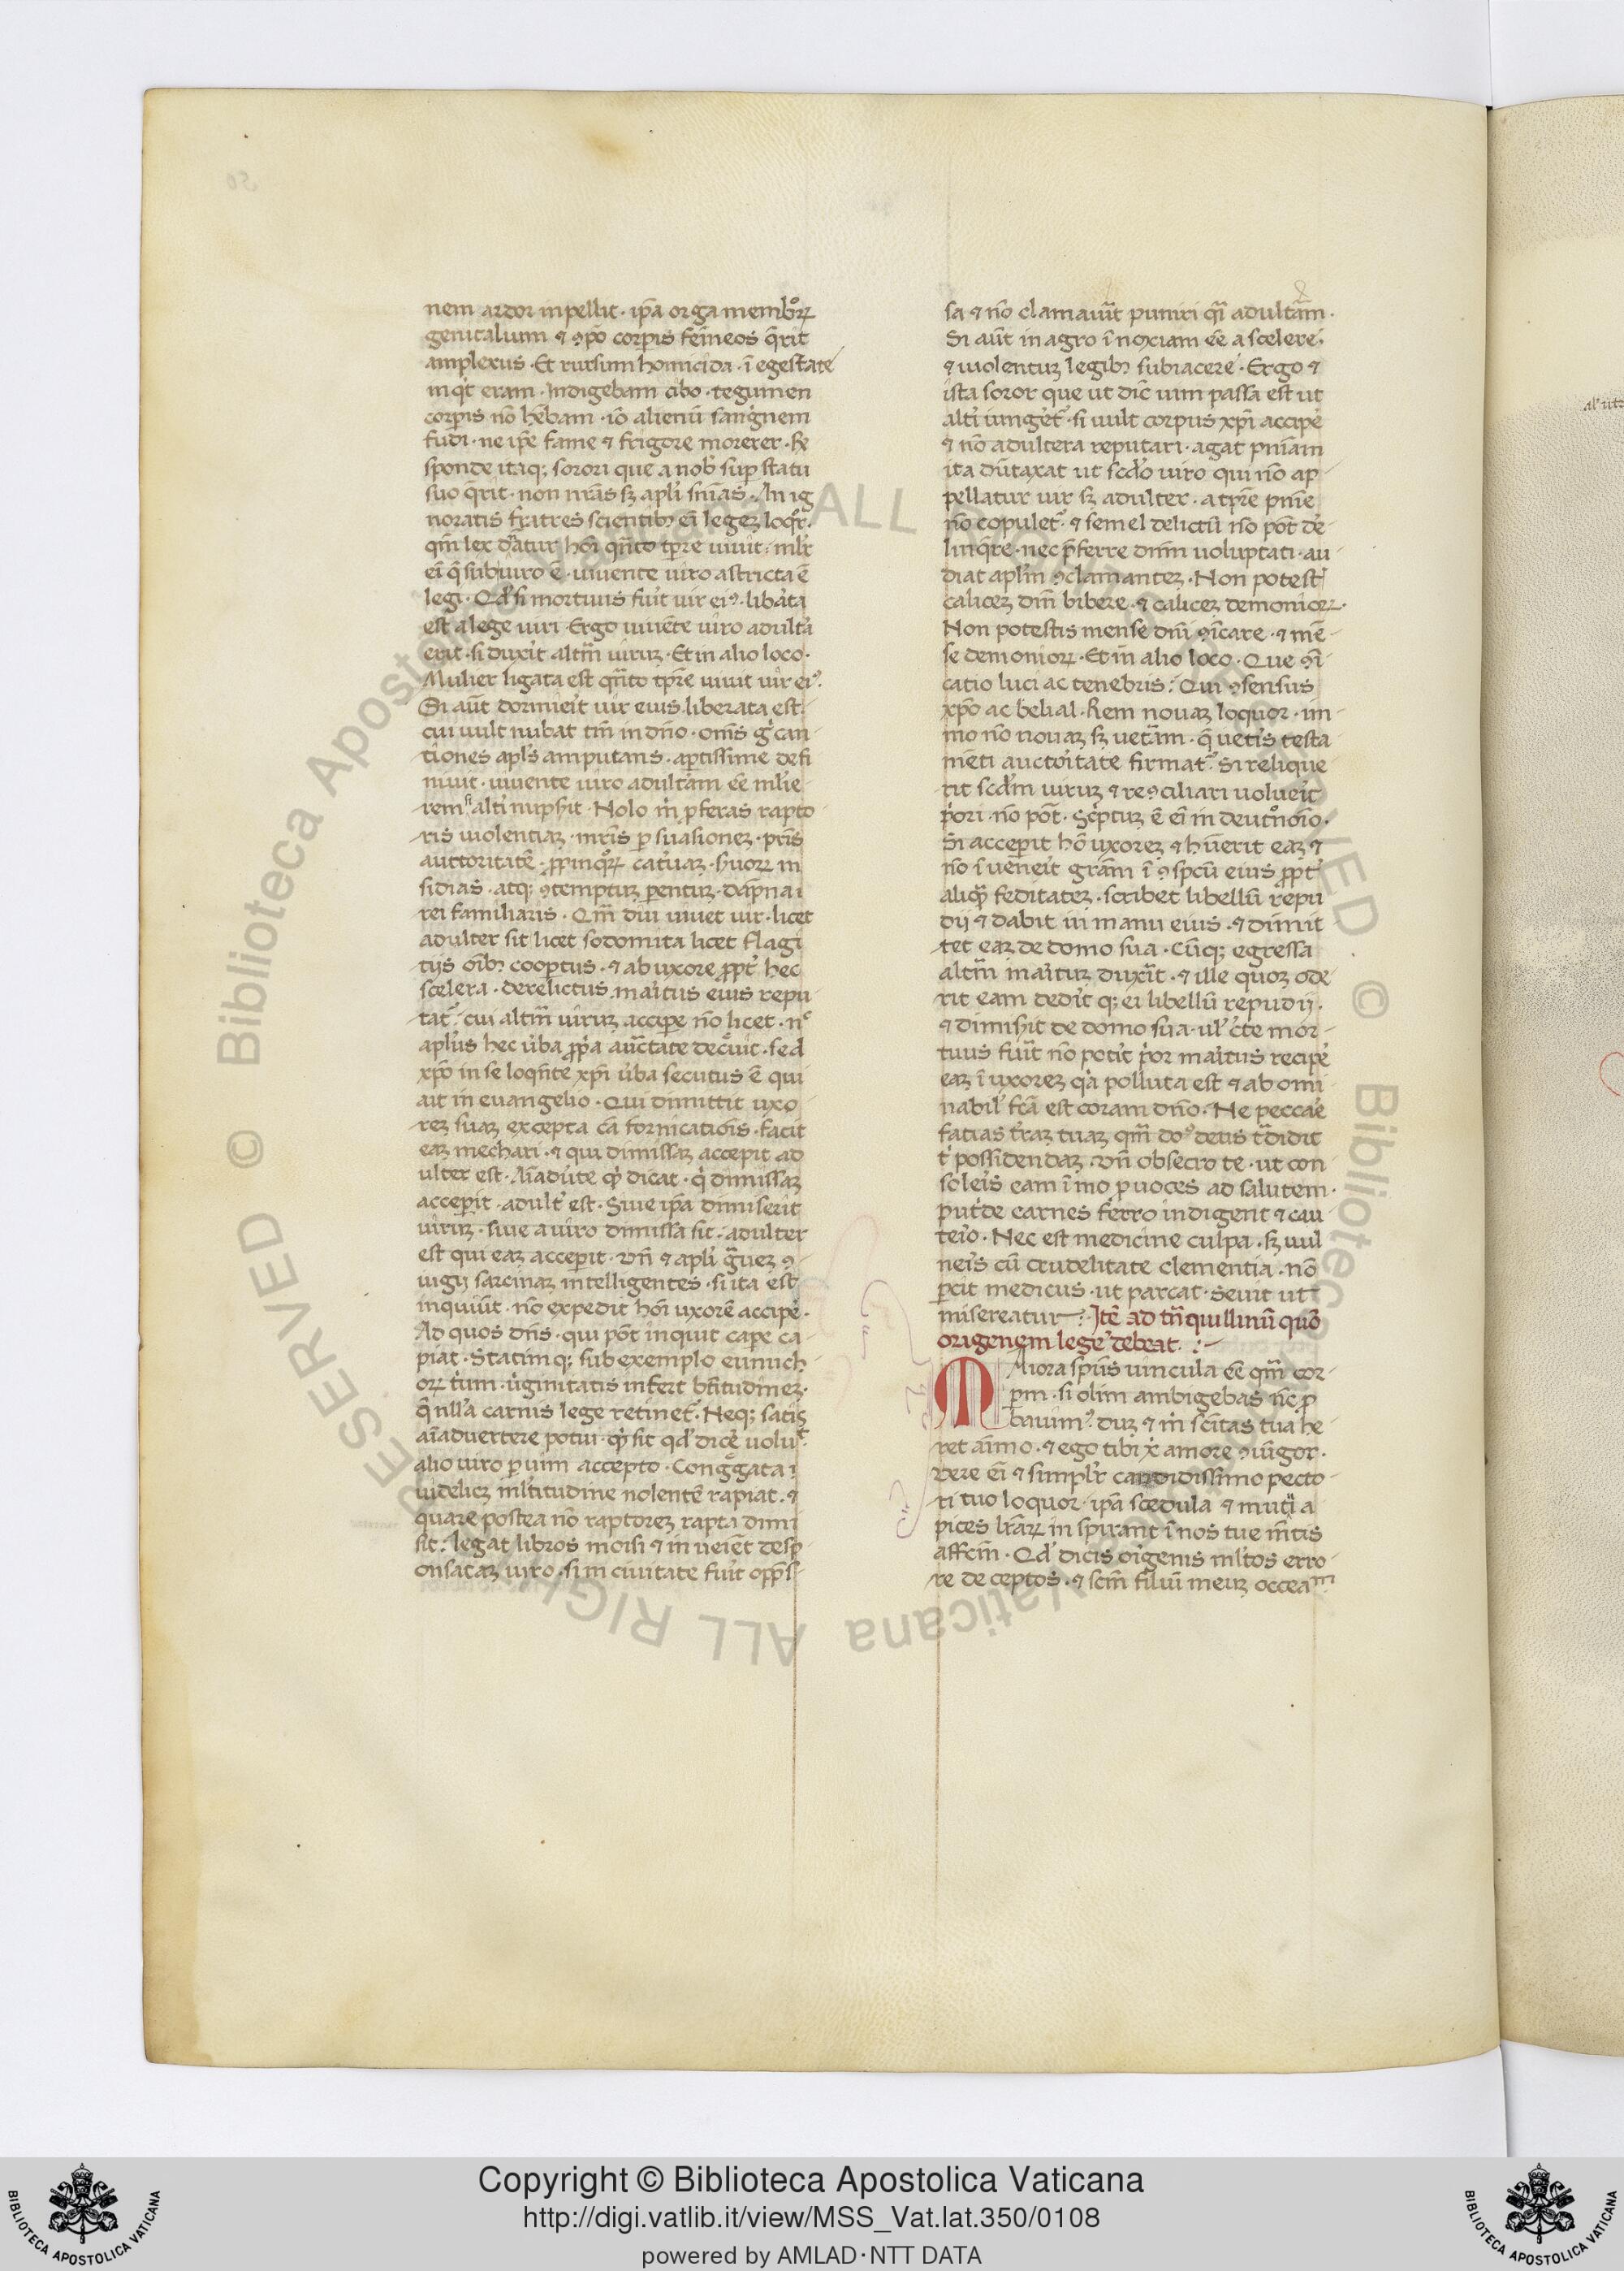 nem ardor inpellit · ip̃a orga membroꝝ
genitalium ⁊ ꝯpõ corpis femĩeos q̃rit
amplexus · Et rursum homicida · ĩ egestate
inqͥt eram · Indigebam cibo · tegumen
corpis nõ hẽbam · iõ alienũ sangͥnem
fudi · ne ip̃e fame ⁊ frigore morerer · Re
sponde itaq; sorori que a nob̉ sup statu
suo q̃rit · non nrãs sꝫ apl̃i sñias · An ig
noratis fratres scientibꝫ eĩ legeꝫ loqͦr ·
qm̃ lex dñatur hõi qñto tp̃re uiuit : ml̃r
eĩ q̃ sub uiro ẽ · uiuente uiro astricta ẽ
legi · Qd̉ si mortuus fuĩt uir eiꝰ · libata
est a lege uiri · Ergo uiuẽte uiro adulta
erit · si duxit altm̃ uiruꝫ · Et in alio loco ·
Mulier ligata est qñto tp̃re uiuit uir eiꝰ ·
Si aũt dormieĩt uir eius liberata est ·
cui uult nubat tm̃ in dño · om̃s gͦ can
tiones apl̃s amputans · aptissime defi
niuit · uiuente uiro adultam eẽ mlie
rem si alti nupsit · Nolo m̉ pferas rapto
ris uiolentiaꝫ · mr̃is psuasioneꝫ · pr̃is
auctoritatẽ · ꝓpinqͦꝝ cateruaꝫ · suoꝝ in
sidias · atq; ꝯtemptuꝫ parentuꝫ · dãpna i
rei familiaris · Qm̃ diu uiuet uir · licet
adulter sit licet sodomita licet flagi
tijs oĩbꝫ cooptus · ⁊ ab uxore ꝓpt̉ hec
scelera · derelictus maritus eius repu
tat̉ · cui altm̃ uiruꝫ accipe nõ licet · nͨ
aplũs hec ũba ꝓpͥa auctate decͥuit · sed
xp̃o in se loqñte xp̃i ũba secutus ẽ qui
ait in euangelio · Qui dimittit uxo
reꝫ suaꝫ excepta cã fornicatiõis · facit
eaꝫ mechari · ⁊ qui dimissaꝫ accepit ad
ulter est · Aĩaduũte qd̉ dicat · qͥ dimissaꝫ
acceperit · adult̉ est · Siue ip̃a dimiserit
uiruꝫ · siue a uiro dimissa sit · adulter
est qui eaꝫ acceperit · Vñ ⁊ apl̃i gͣueꝫ ꝯ
iugij sarcinaꝫ intelligentes · si ita est
inquiũt · nõ expedit hõi uxorẽ accipe ·
Ad quos dñs · qui põt inquit cape ca
piat · Statimq; sub exemplo eunuch
oꝝ tͥum · uͥginitatis infert btĩtudineꝫ ·
q̃ nlla carnis lege retinet̉ · Neq; satis
aĩaduertere potui · qd̉ sit qd̉ dice uoluͥt
alio uiro p uim accepto · Congͣgata i
uidelicꝫ ml̃titudine nolentẽ rapiat · ⁊
quare postea nõ raptoreꝫ rapta dimi
sit : legat libros moisi ⁊ inueiẽt desp
onsataꝫ uiro · si in ciuitate fuit opp̃s
sa ⁊ nõ clamauit puniri qͣi adultam ·
Si aũt in agro ĩnoxiam eẽ a scelere ·
⁊ uiolentuꝫ legibꝫ subiacere · Ergo ⁊
ista soror que ut dic̃ uim passa est ut
alti iunget̉ · si uult corpus xp̃i accipe
⁊ nõ adultera reputari · agat pniam
ita dũtaxat ut scdo uiro qui nõ ap
pellatur uir sꝫ adulter · a tpr̃e pnie
nõ copulet̉ · ⁊ semel delictũ nõ põt de
linqre · nec p̃ferre dnm̃ uoluptati · au
diat aplm̃ ꝯclamanteꝫ · Non potest
caliceꝫ dnĩ bibere · ⁊ caliceꝫ demonioꝝ ·
Non potestis mense dnĩ ꝯĩcare · ⁊ mẽ
se demonioꝝ · Et in alio loco · Que ꝯĩ
catio luci ac tenebris : Qui ꝯsensus
xp̃o ac belial · Rem nouaꝫ loquor · im
mo nõ nouaꝫ sꝫ uet̃am · q̃ ueteris testa
mẽti auctoritate firmat̉ · Si relique
rit scd̃m uiruꝫ ⁊ reꝯciliari uolueit
pͥori · nõ põt · Scͥptuꝫ ẽ eĩ in deut̉noĩo ·
Si acceperit hõ uxoreꝫ ⁊ hũerit eaꝫ ⁊
nõ ĩueneĩt grãm ĩ ꝯspcũ eius ꝓpt̉
aliqͣ feditateꝫ · scribet libellũ repu
dij ⁊ dabit in manu eius · ⁊ dimit
tet eaꝫ de domo sua · Cũq; egressa
altm̃ maritũꝫ duxit · ⁊ ille quoꝫ ode
rit eam dedĩt q; ei libellũ repudij ·
⁊ dimisit de domo sua · ul̉ cͭte mor
tuus fuit nõ poteĩt pͥor maritus recipe
eaꝫ ĩ uxoreꝫ qͥa polluta est ⁊ abomi
nabil̉ fcã est coram dño · Ne peccae
facias tr̃aꝫ tuaꝫ qm̃ doꝰ deus tͣdidit
t̉ possidendaꝫ · Vñ obsecro te · ut con
soleis eam ĩmo puoces ad salutem ·
putͥde carnes ferro indigent ⁊ cau
teio · Nec est medicine culpa · sꝫ uul
neis cũ crudelitate clementia · nõ
pcit medicus · ut parcat · Seuit ut
misereatur : Itẽ ad tñquillinũ quõ
origenem lege debeat · : ~
Maiora sp̃us uincula eẽ qm̃ cor
pm · si olim ambigebas nc̃ p
bauimꝰ · duꝫ ⁊ m̉ scĩtas tua he
ret aĩmo · ⁊ ego tibi xͥ amore ꝯiũgor ·
Vere eĩ ⁊ simplr̃ candidissimo pecto
ri tuo loquor · ip̃a scedula ⁊ muti a
pices lr̃aꝝ inspirant ĩ nos tue mẽtis
affcm̃ · Qd̉ dicis origenis ml̃tos erro
re deceptos · ⁊ scm̃ filiũ meuꝫ occeam
Copyright © Biblioteca Apostolica Vaticana
http://digi.vatlib.it/view/MSS_Vat.lat.350/0108
powered by AMLAD·NTT DATA
BIBLIOTECA APOSTOLICA VATICANA
BIBLIOTECA APOSTOLICA VATICANA